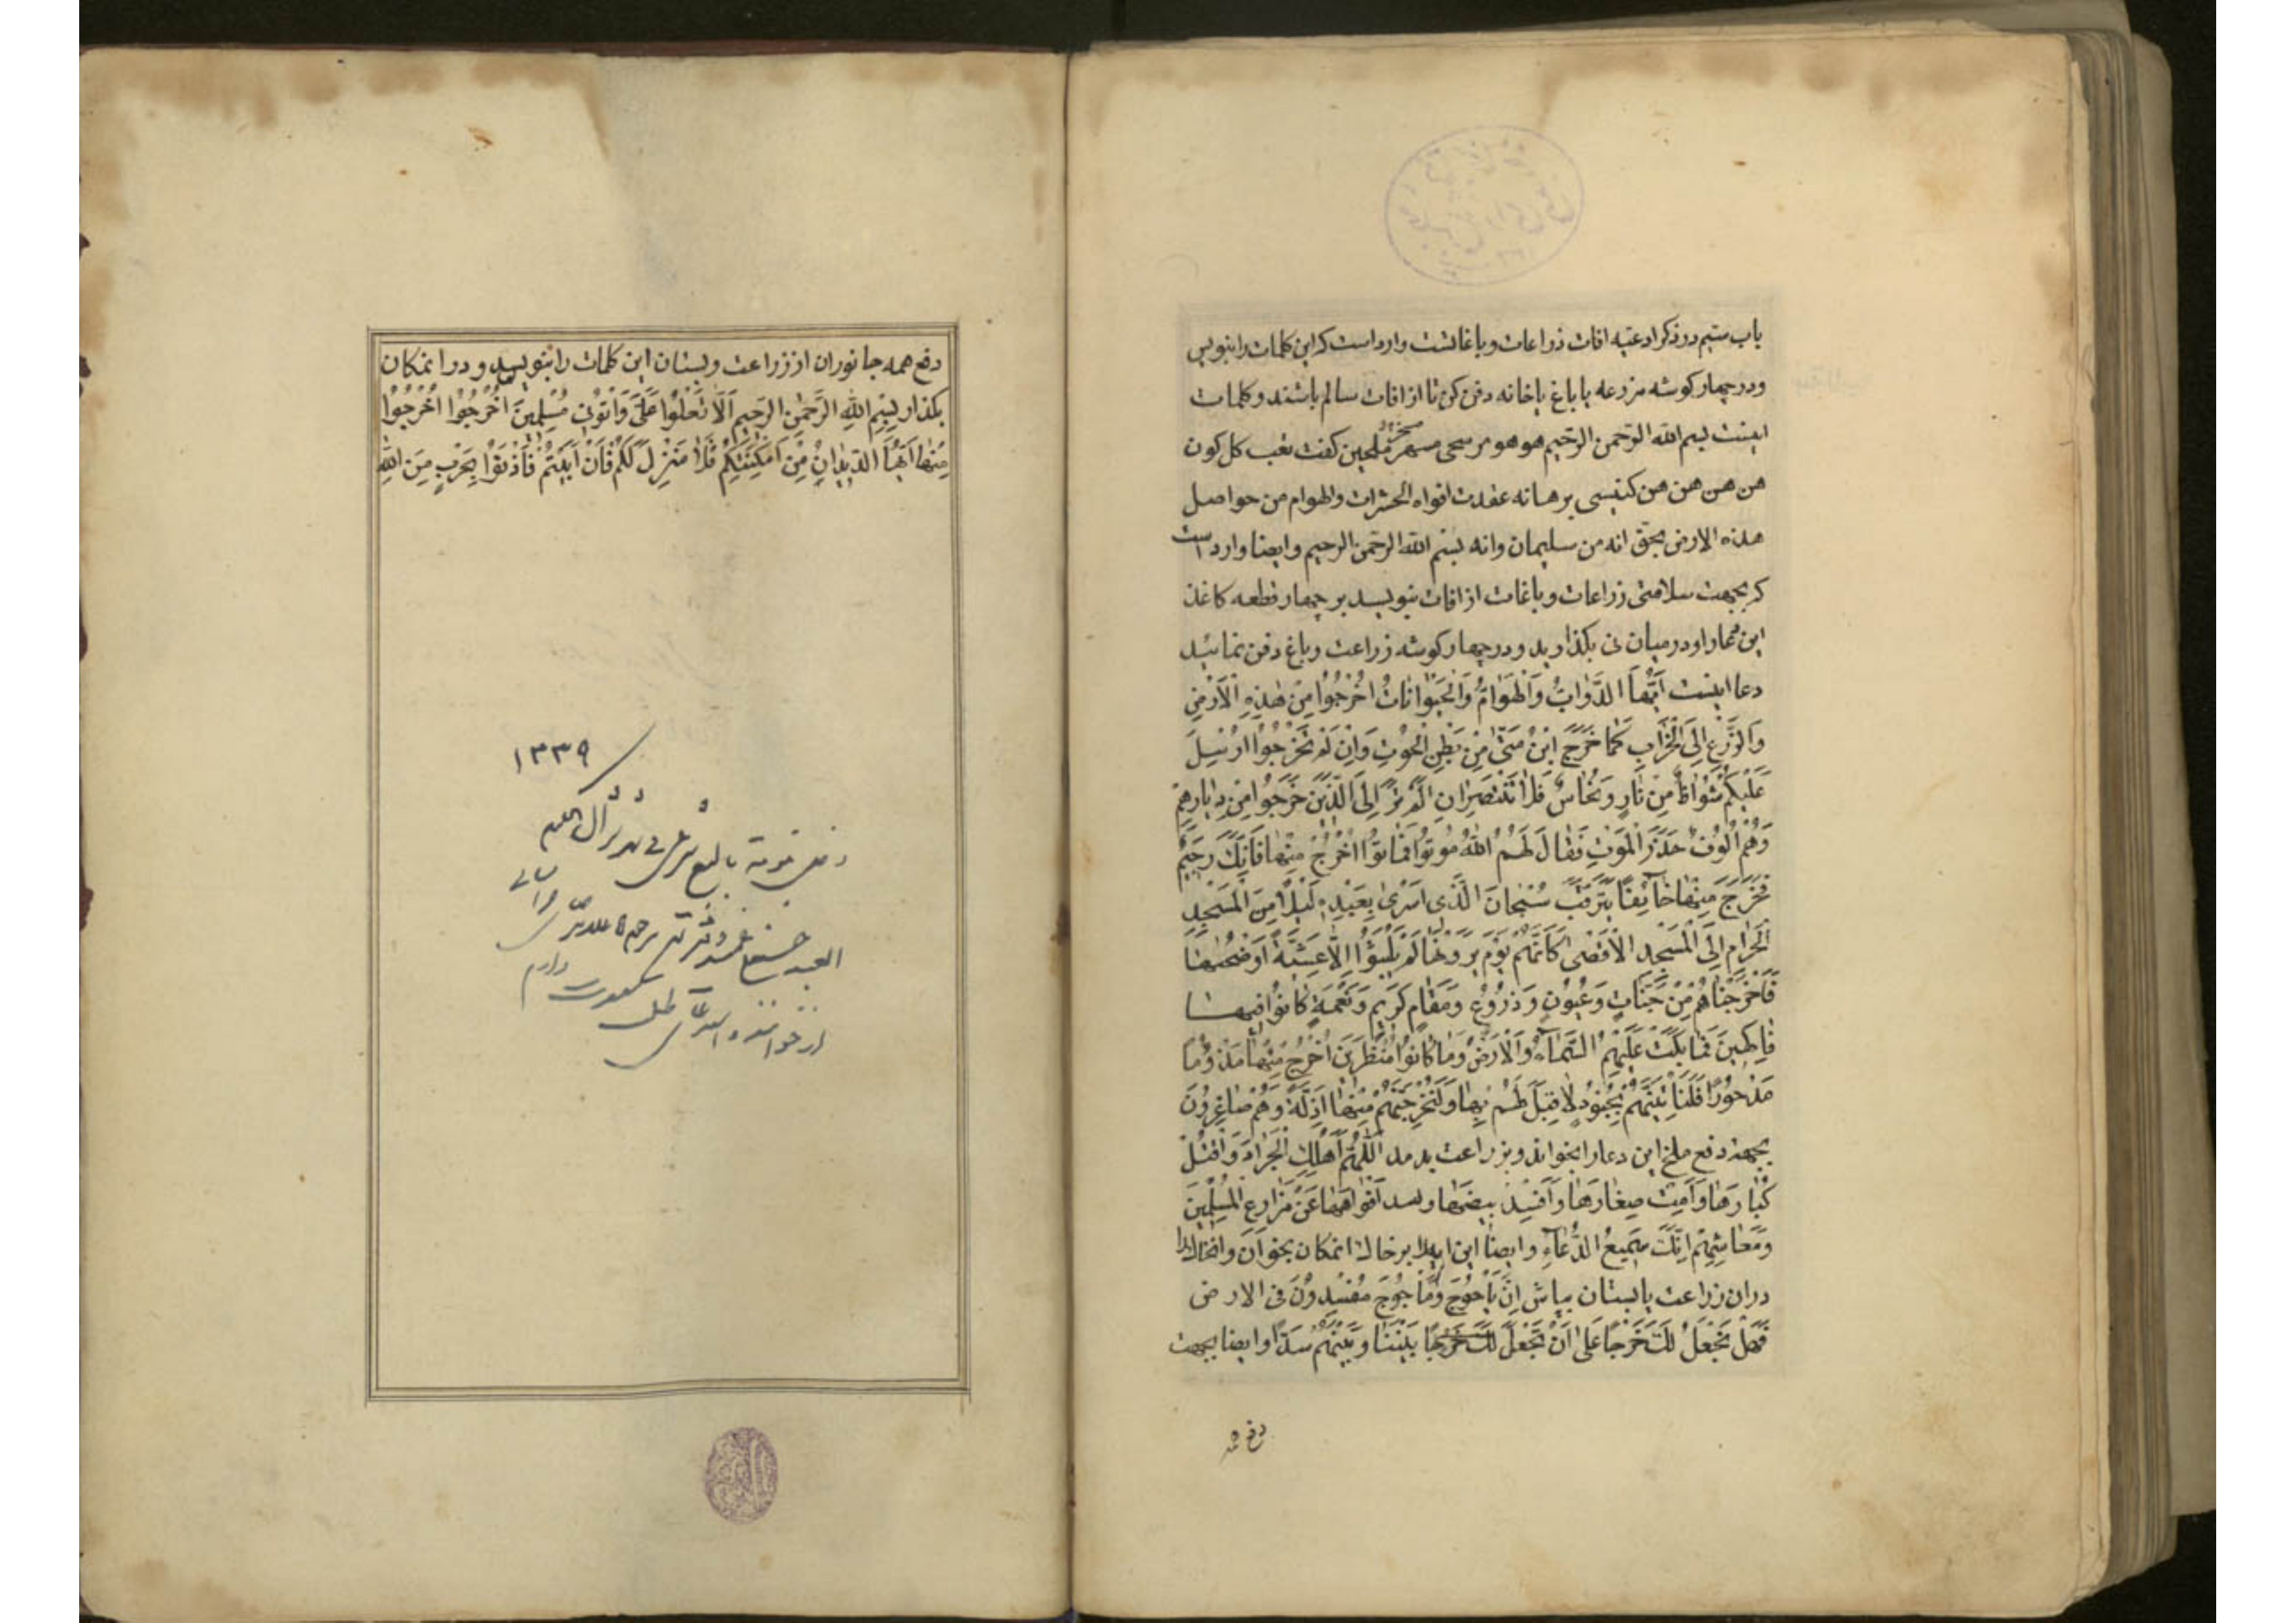 باب ستیم در ذکر ادعیه افات ذراعات و باغاتست وارد است که این کلمات را بنویس
و در چهار کوشه مزرعه یا باغ یا خانه دفن کن تا از افات سالم باشند و کلمات
اینست بسم الله الرحمن الرحیم هو هو
هن هن هن هن عقدت افواه الحشرات والهوام من حواصل
هذه الارض بحق انه من سلیمان وانه بسم الله الرحمن الرحیم و ایضا وارد است
که بجهت سلامتی زراعات و باغات از افات بنویسد بر چهار قطعه کاغذ
این در میان نی بکذارید و در چهار کوشه زراعت و باغ دفن نمائید
دعا اینست اَیُّهَا الدَّوَابُّ وَالْهَوَامُّ وَالْحَیَوٰانَاتُ اخْرُجُوْا مِنْ هٰذِهِ الْاَرْضِ
وَالزَّرْعِ اِلَی الْخَرَابِ کَمَا خَرَجَ ابْنُ مَتّٰی مِنْ بَطْنِ الْحُوْتِ وَاِنْ لَمْ تَخْرُجُوْا اُرْسِلَ
عَلَیْکُمْ شُوَاظٌ مِنْ نَارٍ وَنُحَاسٌ فَلٰا تَنْتَصِرَانِ اَلَمْ تَرَ اِلَی الَّذِیْنَ خَرَجُوْا مِنْ دِیَارِهِمْ
وَهُمْ اُلُوْفٌ حَذَرَ الْمَوْتِ فَقَالَ لَهُمُ اللهُ مُوْتُوْا فَمَاتُوْا اُخْرُجْ مِنْهَا فَاِنَّکَ رَجِیْمٌ
فَخَرَجَ مِنْهَا خَائِفًا یَتَرَقَّبُ سُبْحَانَ الَّذِی اَسْرٰی بِعَبْدِهِ لَیْلًا مِنَ الْمَسْجِدِ
الْحَرَامِ اِلَی الْمَسْجِدِ الْاَقْصٰی کَاَنَّهُمْ یَوْمَ یَرَوْنَهَا لَمْ یَلْبَثُوْا اِلَّا عَشِیَّةً اَوْ ضُحٰیهَا
فَاَخْرَجْنَاهُمْ مِنْ جَنَّاتٍ وَعُیُوْنٍ وَزُرُوْعٍ وَمَقَامٍ کَرِیْمٍ وَنَعْمَةٍ کَانُوْا فِیْهَا
فَاکِهِیْنَ فَمَا بَکَتْ عَلَیْهِمُ السَّمَاءُ وَالْاَرْضُ وَمَا کَانُوْا مُنْظَرِیْنَ اُخْرُجْ مِنْهَا مَذْؤُمًا
مَدْحُوْرًا فَلَنَأْتِیَنَّهُمْ بِجُنُوْدٍ لَا قِبَلَ لَهُمْ بِهَا وَلَنُخْرِجَنَّهُمْ مِنْهَا اَذِلَّةً وَهُمْ صَاغِرُوْنَ
بجهة دفع ملخ این دعا را بخواند و بزراعت بدمد اَللّٰهُمَّ اَهْلِکِ الْجَرَادَ وَاقْتُلْ
کِبَارَهَا وَاَمِتْ صِغَارَهَا وَاَفْسِدْ بیضَهَا وسد اَفْوَاهَهَا عَنْ مَزَارِعِ الْمُسْلِمِیْنَ
وَمَعَاشِهِمْ اِنَّکَ سَمِیْعُ الدُّعَاءِ و ایضا این ایه را بر خاک انمکان بخوان و انخاک را
در ان زراعت یا بستان بپاش اِنَّ یَأْجُوْجَ وَمَأْجُوْجَ مُفْسِدُوْنَ فی الارض
فَهَلْ نَجْعَلُ لَکَ خَرْجًا عَلٰی اَنْ تَجْعَلَ بَیْنَنَا وَبَیْنَهُمْ سَدًّا و ایضا بجهت
دفع همه
دفع همه جانوران از زراعت و بستان این کلمات را بنویسد و در انمکان
بکذارد بِسْمِ اللهِ الرَّحْمٰنِ الرَّحِیمِ اَلَّا تَعْلُوْا عَلَیَّ وَأْتُوْنِی مُسْلِمِیْنَ اُخْرُجُوْا اُخْرُجُوْا
مِنْهَا اَیُّهَا الدِّیْدَانُ مِنْ اَمْکِنَتِکُمْ فَلٰا مَنْزِلَ لَکُمْ فَاِنْ اَبَیْتُمْ فَأْذَنُوْا بِحَرْبٍ مِنَ اللهِ
۱۳۳۹